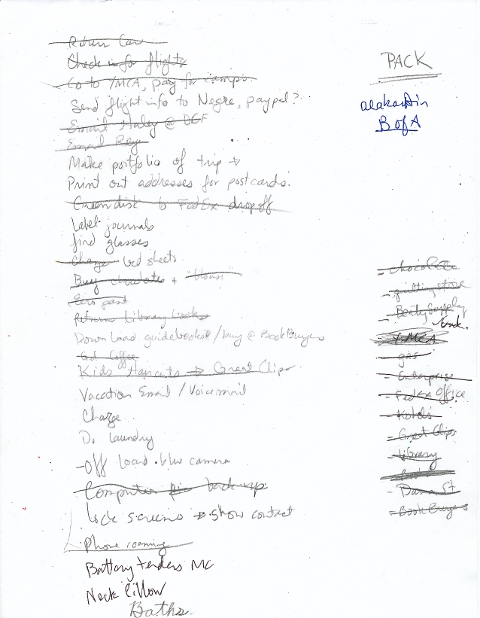 Return Car
Check info for flights
Go to YMCA, pay for camps
Send flight info to Negre, paypal?
Email Haley @ BGF
Email
Make portfolio of trip
Print out addresses for postcards.
Greendisk to FedEx dropoff
Label journals
find glasses
Change bed sheets
Buy chocolate +
Return Library books
Download guidebook / buy @ BookBuyers
Get Coffee
Kids Haircuts → Great Clips
Vacation Email / Voicemail
Charge
Do laundry
- Off load blue camera
Computer back-up
Lock screens → show contact
Phone roaming
Battery tenders MC
Neck Pillow
Baths.
PACK
B of A
- chocolate
- quilting store
- Beauty Supply
- YMCA
- gas
- Enterprise
- FedEx Office
- Kohls
- Great Clips
- Library
- Dana St
- Book Buyers